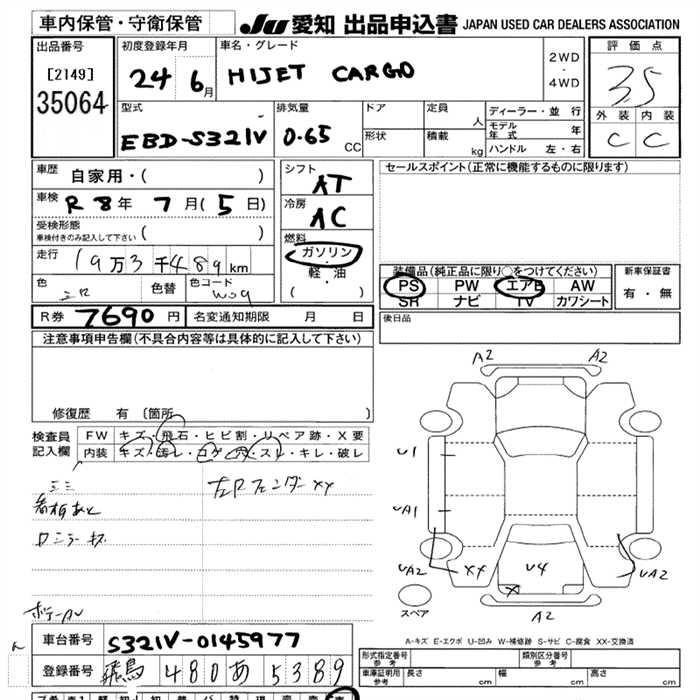 車内保管・守衛保管
JU 愛知 出品申込書 JAPAN USED CAR DEALERS ASSOCIATION
出品番号
[2149]
35064
初度登録年月
24 6月
車名・グレード
HIJET CARGO
2WD
・
4WD
評価点
3.5
外装 内装
C C
型式
EBD-S321V
排気量
0.65 CC
ドア
形状
定員 人
積載 kg
ディーラー・並行
モデル年式 年
ハンドル 左・右
車歴
自家用・( )
車検
R8年 7月(5日)
受検形態
車検付きのみ記入して下さい ( )
走行
19万3千489km
色 シロ 色替 色コード W09
シフト
AT
冷房
AC
燃料
ガソリン
・
軽・油
( )
セールスポイント(正常に機能するものに限ります)
装備品(純正品に限り○をつけてください)
PS PW エアB AW
SR ナビ TV カワシート
新車保証書
有・無
R券 7690円 名変通知期限 月 日
後日品
注意事項申告欄(不具合内容等は具体的に記入して下さい)
修復歴 有 〔箇所 〕
検査員
記入欄
FW キズ・飛石・ヒビ割・リペア跡・X要
内装 キズ・汚レ・コゲ・穴・スレ・キレ・破レ
左RフェンダーXX
看板あと
A2 A2
U1
UA1
UA2 XX U4 X UA2
A2
スペア
A-キズ E-エクボ U-凹み W-補修跡 S-サビ C-腐食 XX-交換済
車台番号 S321V-0145977
登録番号 飛鳥 480 あ 5389
形式指定番号
参考
類別区分番号
参考
車庫証明用
参考
長さ cm 幅 cm 高さ cm